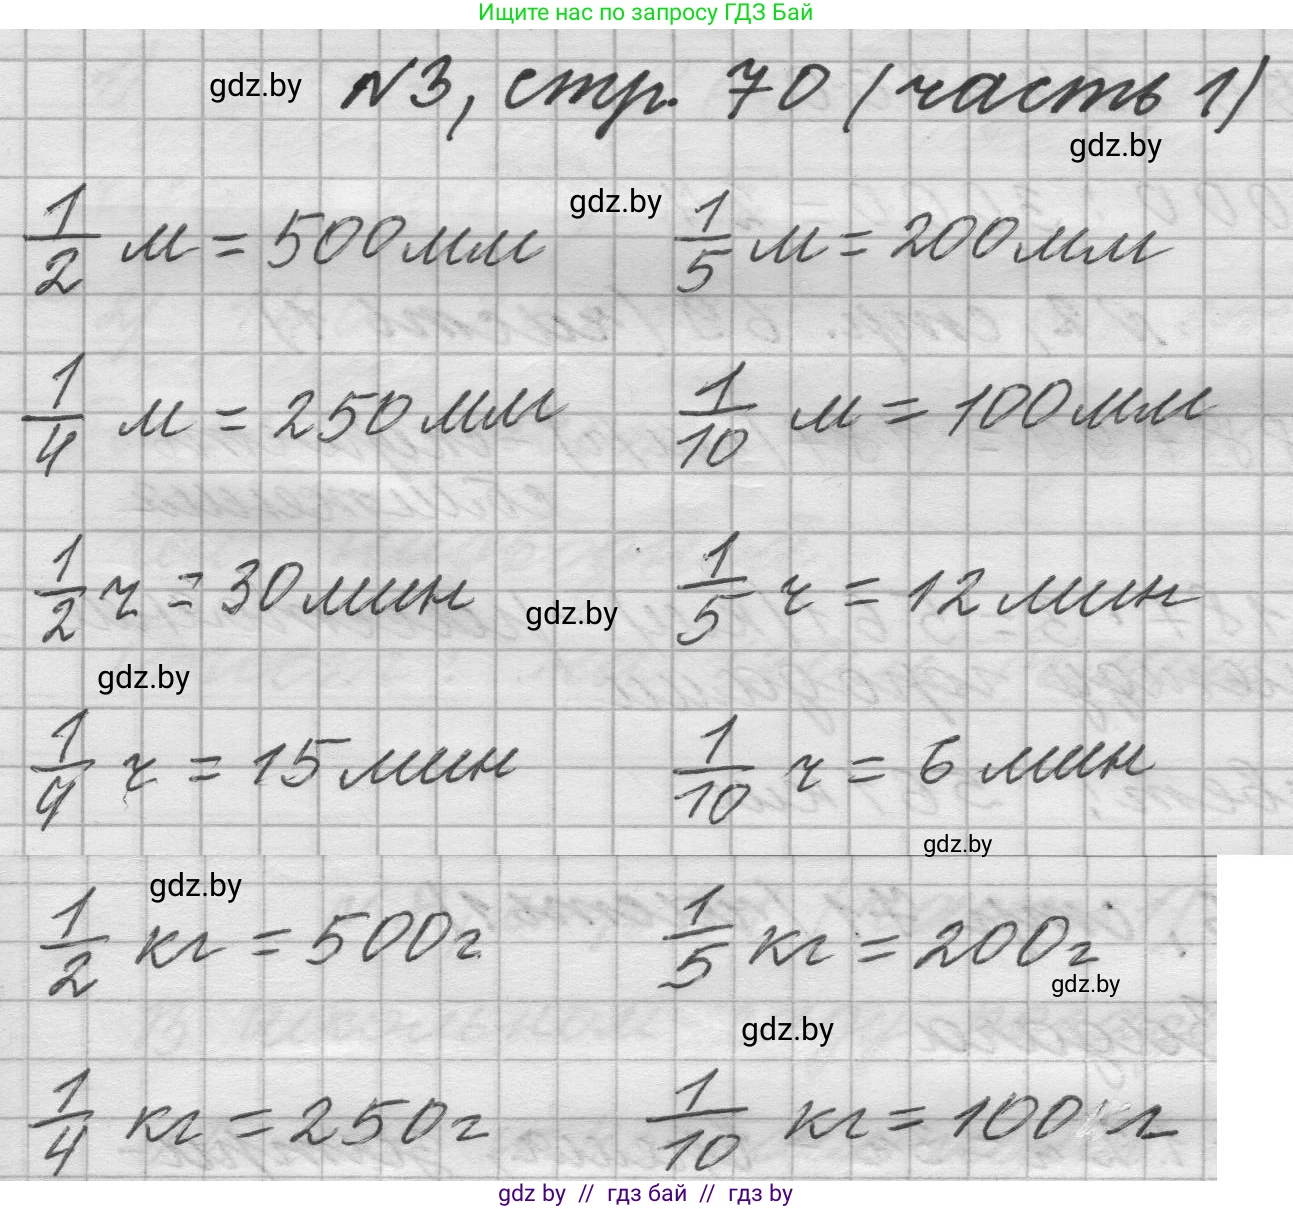 Ищите нас по запросу ГДЗ Бай
gdz.by N3, стр. 70 (часть 1)
gdz.by
gdz.by
1/2 м = 500 мм 1/5 м = 200 мм
1/4 м = 250 мм 1/10 м = 100 мм
1/2 ч = 30 мин 1/5 ч = 12 мин
gdz.by
gdz.by
1/4 ч = 15 мин 1/10 ч = 6 мин
gdz.by
gdz.by
1/2 кг = 500 г 1/5 кг = 200 г
gdz.by
gdz.by
1/4 кг = 250 г 1/10 кг = 100 г
gdz by // гдз бай // гдз by